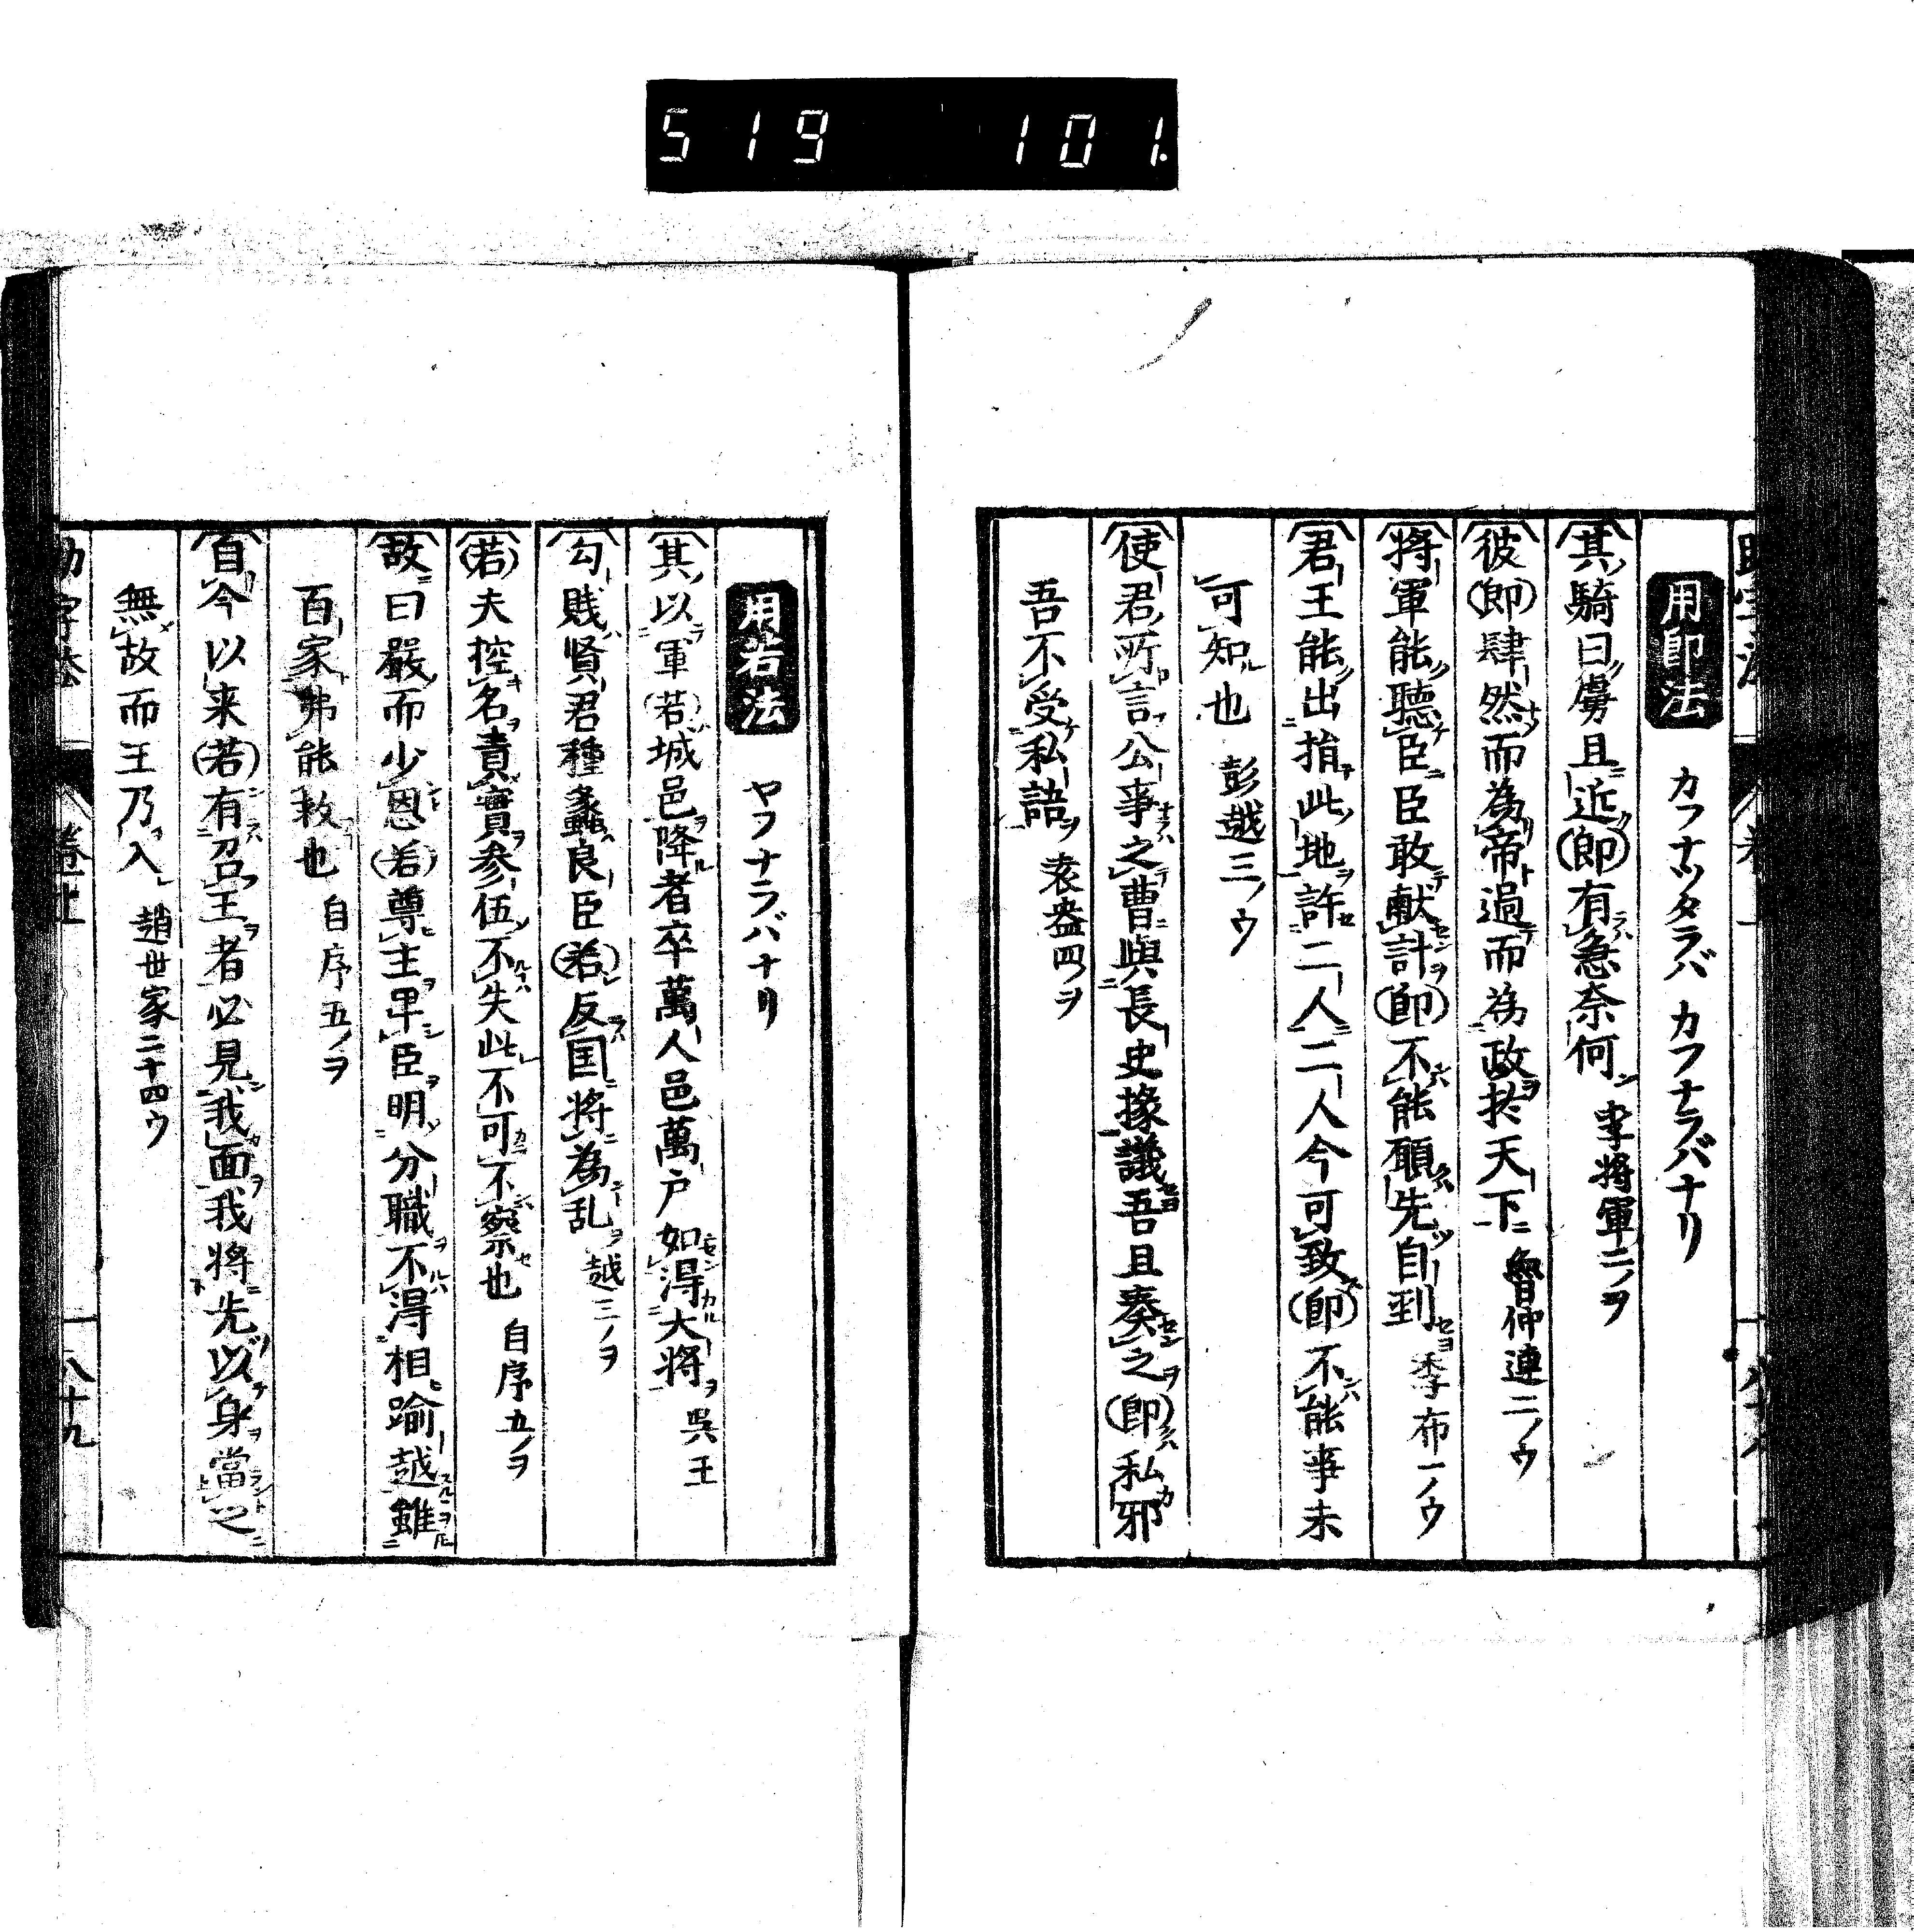 519 101.
用即法 カフナツタラバ カフナラバナリ
其騎曰虜且近(即)有急奈何 李將軍二ノヲ
彼(即)肆然而為帝過而為政於天下 魯仲連二ノウ
將軍能聽臣臣敢献計(即)不能願先自到 季布一ノウ
君王能出捐此地許二人二人今可致(即)不能事未
可知也 彭越三ノウ
使君所言公事之曹與長史掾議吾且奏之(即)私邪
吾不受私語 袁盎四ノヲ
用若法 ヤフナラバナリ
其以軍(若)城邑降者卒萬人邑萬戸如得大将 呉王
勾賤賢君種蠡良臣(若)反国将為乱 越三ノヲ
(若)夫控名責實参伍不失此不可不察也 自序五ノヲ
故曰嚴而少恩(若)尊主卑臣明分職不得相踰越雖
百家弗能敕也 自序五ノヲ
自今以来(若)有召王者必見我面我将先以身當之
無故而王乃入 趙世家二十四ウ
卷上 八十九